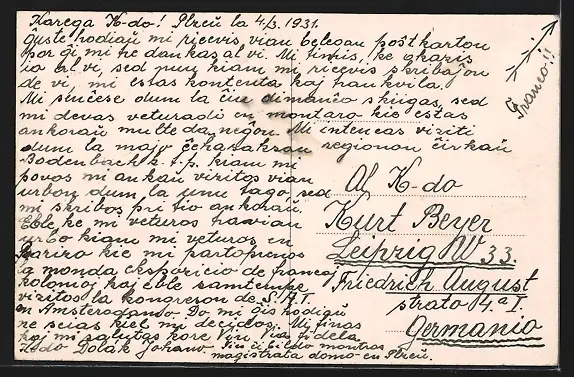 Karega K-do! Plzeň la 4/3. 1931.
Ĝuste hodiaŭ mi ricevis vian belecan poŝtkarton
por ĝi mi tre dankas al vi. Mi timis, ke okazis
io al vi, sed nun kiam mi ricevis skribaĵon
de vi, mi estas kontenta kaj trankvila.
Mi sincese dum la tiu dimanĉo skiigas, sed
mi devas veturadi en montaro kie estas
ankoraŭ multe da neĝon. Mi intencas viziti
dum la majo ĉeĥan saksan regionon ĉirkaŭ
Bodenbach k. t. p. kiam mi
povos mi ankaŭ vizitos vian
urbon dum la unu tago, sed
mi skribos pri tio ankoraŭ.
Eble ke mi veturos tra vian
urbo kiam mi veturos en
Parizo kie mi partoprenos
la monda ekspozicio de francaj
kolonioj kaj eble samtempe
vizitos la kongreson de S.A.T.
en Amsterdamo. Do mi ĝis hodiaŭ
ne scias kiel mi decidos. Mi finas
kaj mi salutas kore Vin. Via fidela
K-do Dolák Johano. Tiu ĉi bildo montras
magistrata domo en Plzeň.
Franco!!
Al K-do
Kurt Beyer
Leipzig W 33.
Friedrich August
strato 4.a I.
Germanio